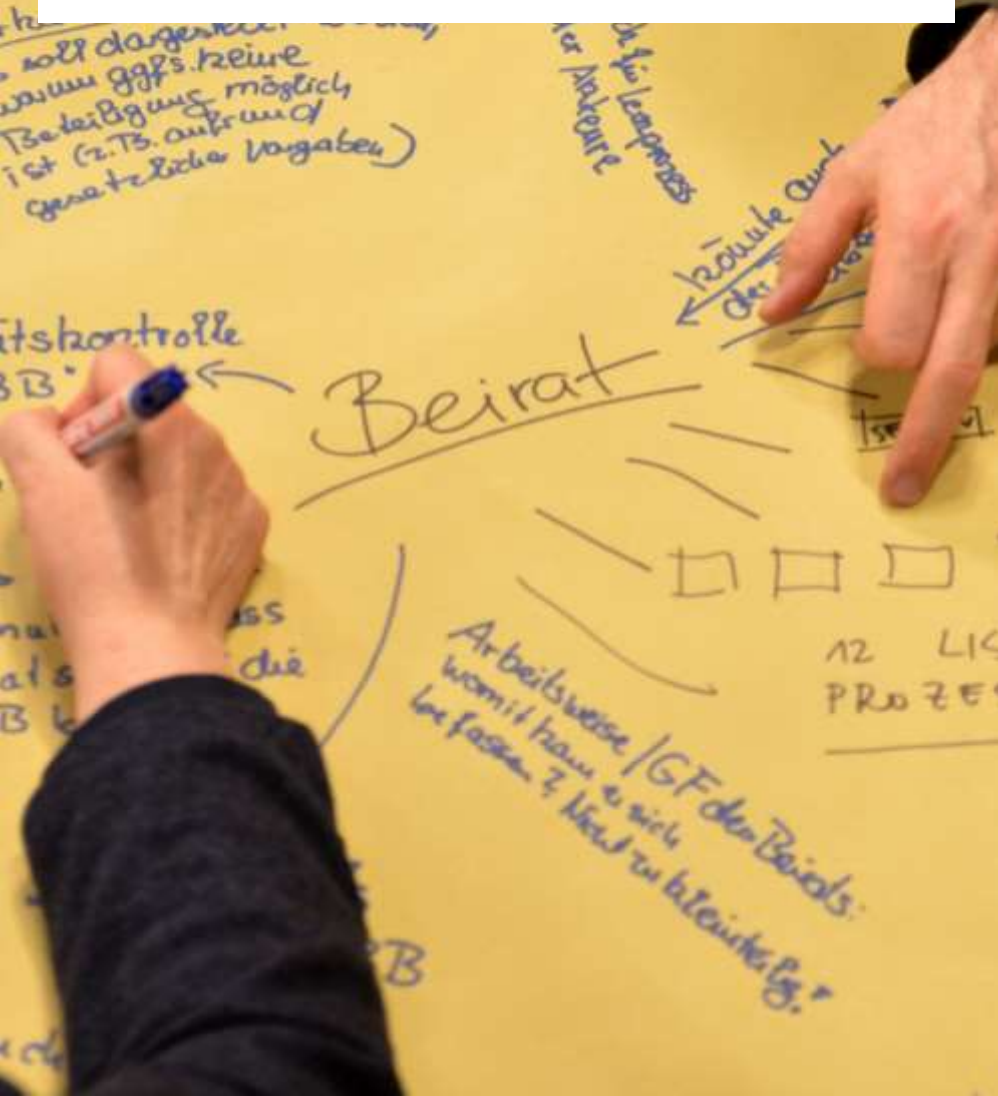 soll dargestellt
warum ggfs. keine
Beteiligung möglich
ist (z.B. aufgrund
gesetzlicher Vorgaben)
ch für Lernprozess
der Akteure
könnte auch
der
itskontrolle
BB
Beirat
12 LIC
PROZES
ass
die
B
Arbeitsweise / GF des Beirats:
womit kann er sich
befassen? Nicht zu kleinteilig!
B